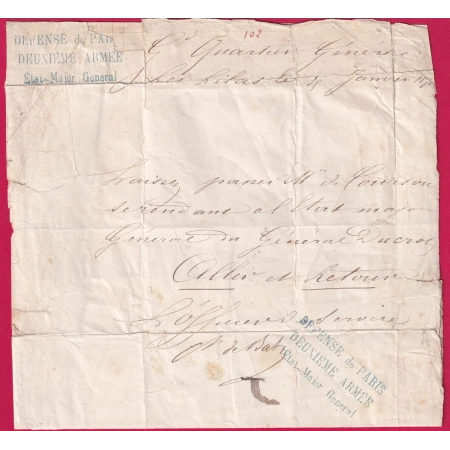 102
DEFENSE de PARIS
DEUXIÈME ARMÉE
État-Major Général
Gd Quartier Général
Les Lilas le Janvier
Laissez passer Mr de Courson
se rendant a l'Etat major
General du Général Ducrot
Aller et Retour
L'Officier de service
de
DEFENSE de PARIS
DEUXIÈME ARMÉE
État-Major Général